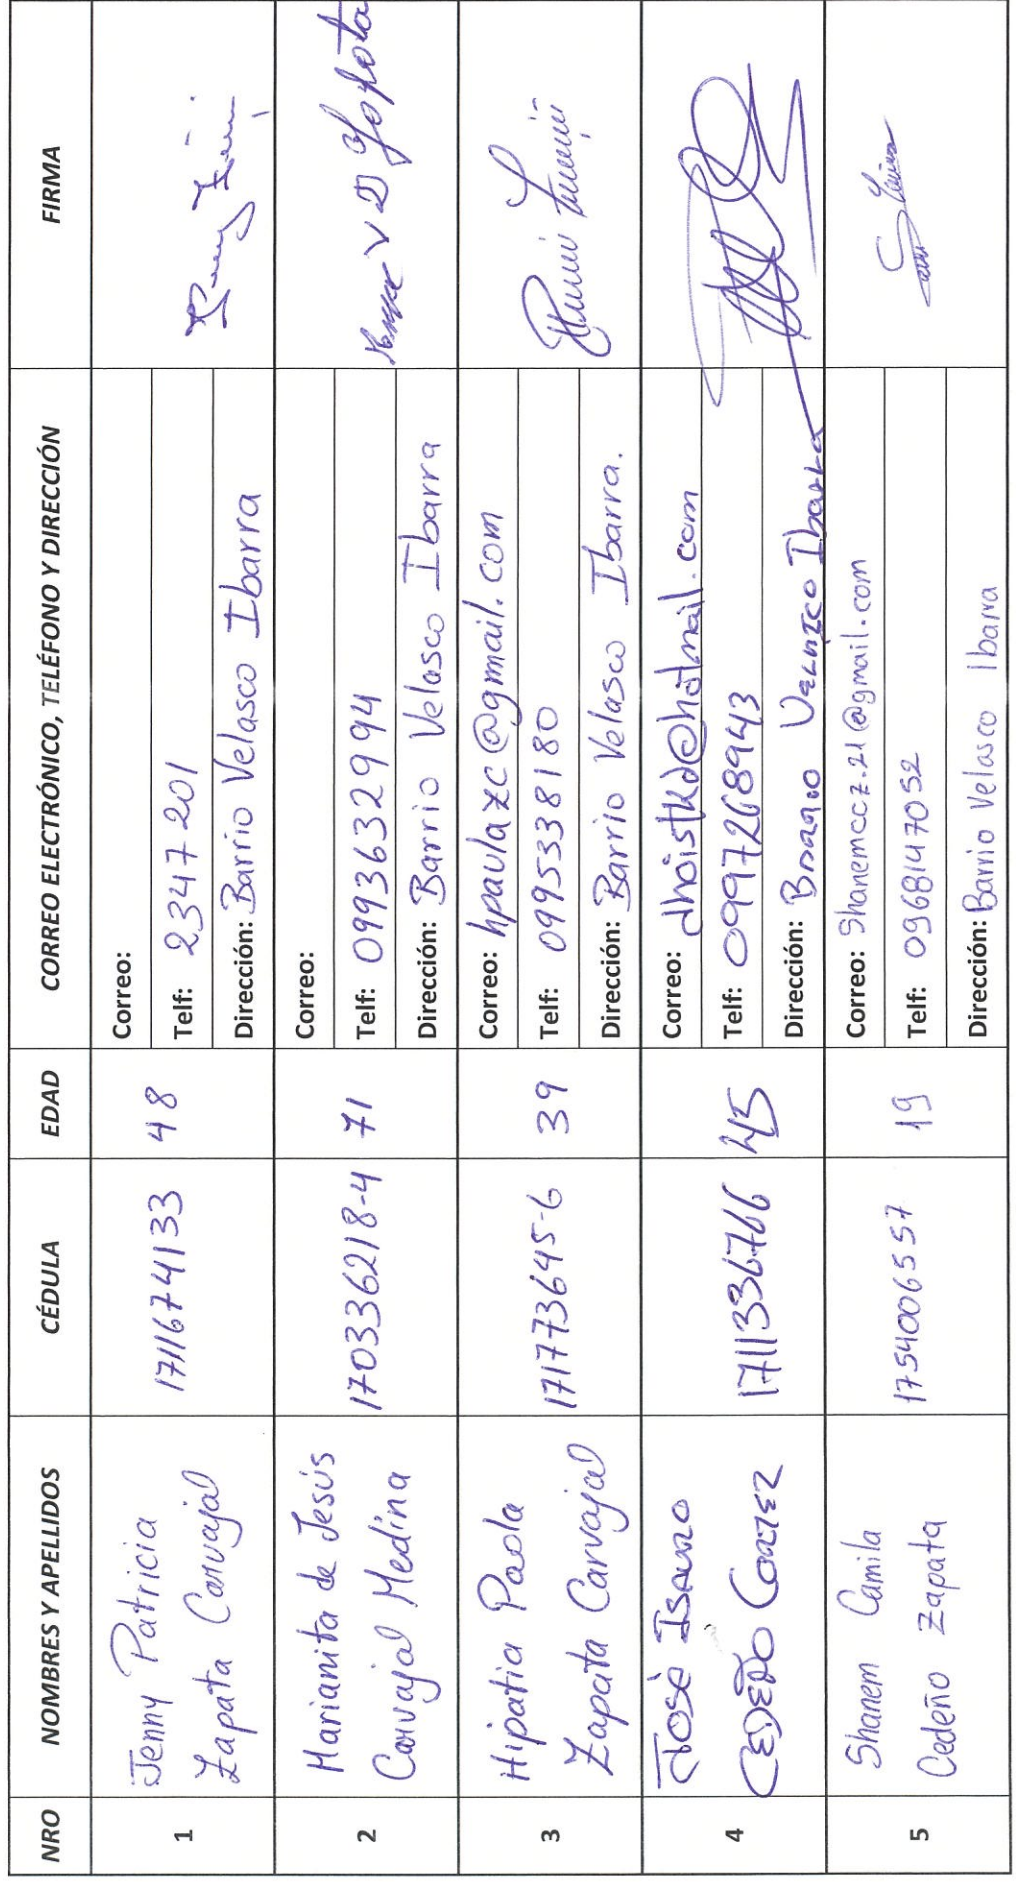 NRO NOMBRES Y APELLIDOS CÉDULA EDAD CORREO ELECTRÓNICO, TELÉFONO Y DIRECCIÓN FIRMA
1
Jenny Patricia
Zapata Carvajal
1711674133
48
Correo:
Telf: 2347201
Dirección: Barrio Velasco Ibarra
2
Marianita de Jesús
Carvajal Medina
170336218-4
71
Correo:
Telf: 0993632994
Dirección: Barrio Velasco Ibarra
3
Hipatia Paola
Zapata Carvajal
171773645-6
39
Correo: hpaulazc@gmail.com
Telf: 0995338180
Dirección: Barrio Velasco Ibarra.
4
José
Cedeño Cortez
1711336766
45
Correo: dhoistkd@hotmail.com
Telf: 0997268943
Dirección: Barrio Velasco Ibarra
5
Shanem Camila
Cedeño Zapata
1754006557
19
Correo: Shanemccz.21@gmail.com
Telf: 0968147052
Dirección: Barrio Velasco Ibarra